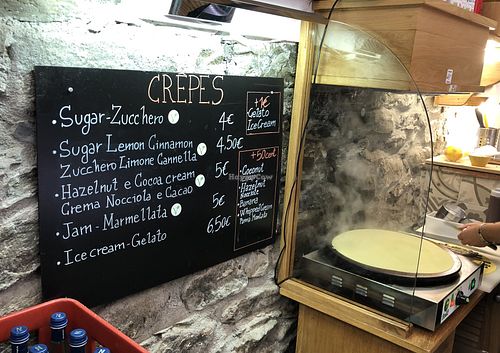 CRÊPES
Sugar-Zucchero
4€
Sugar Lemon Cinnamon
Zucchero Limone Cannella
4,50€
Hazelnut e Cocoa cream
Crema Nocciola e Cacao
5€
Jam - Marmellata
5€
Ice cream - Gelato
6,50€
+1€
Gelato
Ice Cream
+50cent
Coconut
Hazelnut
Banana
Whipped Cream
Panna Montata